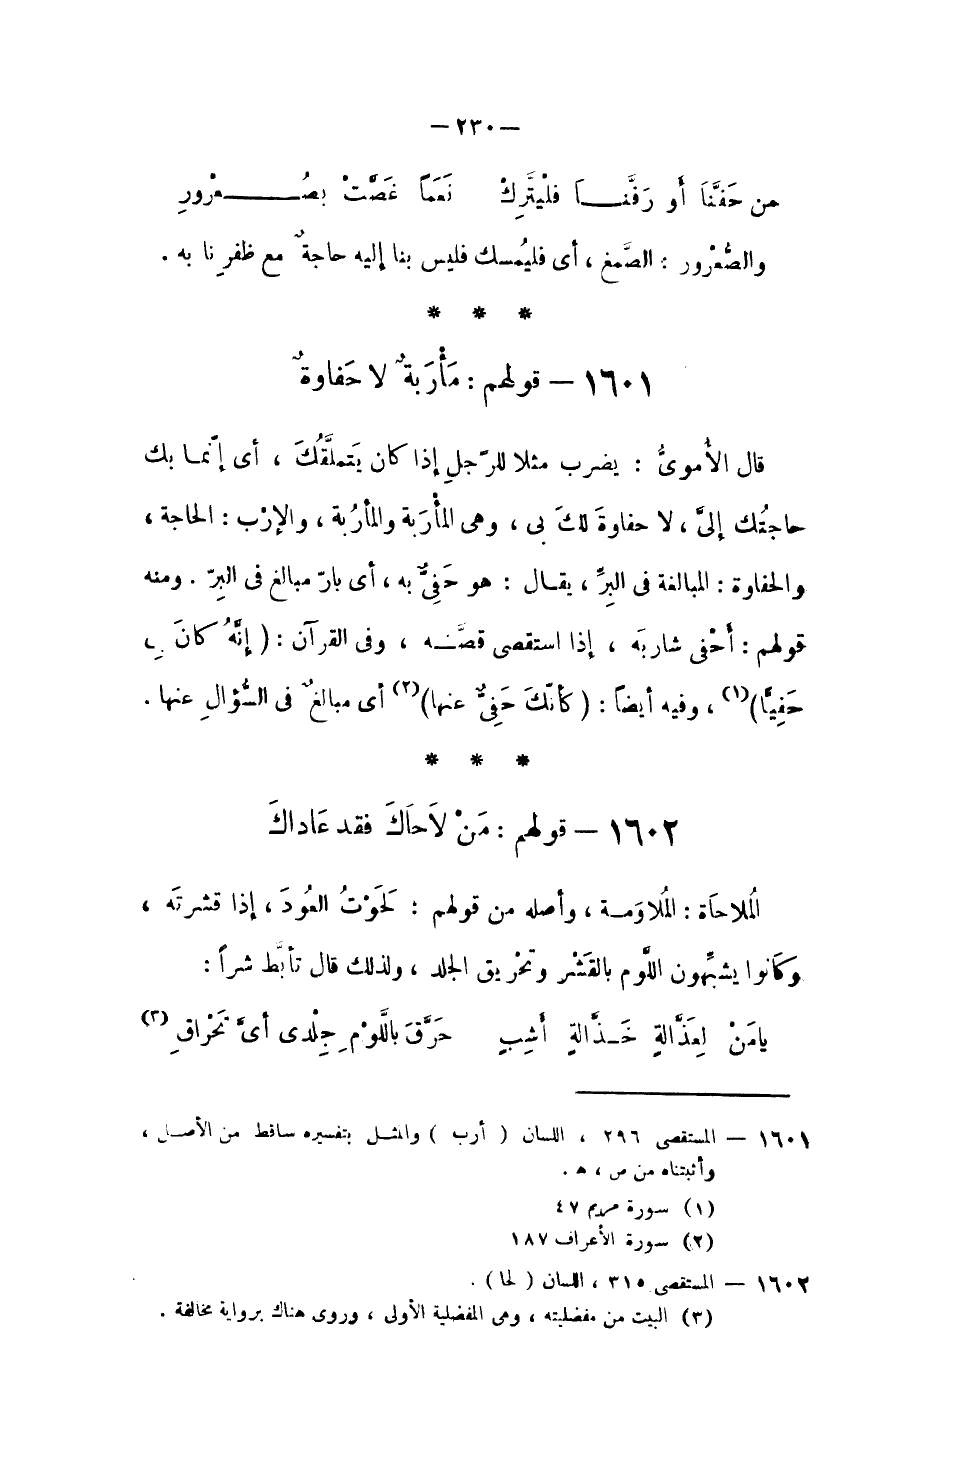 — ٢٣٠ —
من حَفَّنَا أَو رَفَّنَــا فلْيَتَّرِكْ نَعَمًا غَصَّتْ بصُــعْرُورِ
والصُّعْرُور : الصَّمغ ، أى فليُمسك فليس بنا إليه حاجةٌ مع ظفرِنا به .
* * *
١٦٠١ — قولهم : مَأْرَبةٌ لا حَفاوةٌ
قال الأُموىُّ : يضرب مثلا للرّجلِ إذا كان يَتملَّقُكَ ، أى إنّما بك
حاجتُك إلىَّ ، لا حفاوةَ لكَ بى ، وهى المأْرَبة والمأرُبة ، والإرْب : الحاجة ،
والحفاوة : المبالغة فى البِرِّ ، يقــال : هو حَفِىٌّ به ، أى بارّ مبالغ فى البِرّ . ومنه
قولهم : أَحْفى شاربَه ، إذا استقصى قصَّــه ، وفى القرآن : ( إنَّهُ كانَ بِى
حَفِيًّا)(١) ، وفيه أيضاً : ( كأنّكَ حَفِىٌّ عنها)(٢) أى مبالغٌ فى السُّؤالِ عنها .
* * *
١٦٠٢ — قولهم : مَنْ لاَحاَكَ فقد عَاداكَ
المُلاحَاة : المُلاوَمــة ، وأصله من قولهم : لَحَوْتُ العُودَ ، إذا قشرتَه ،
وكانوا يشبِّهون اللَّوم بالقَشْر وتَخْريق الجلد ، ولذلك قال تأبَّط شراً :
يامَنْ لِعَذَّالةٍ خَــذَّالةٍ أَشِبٍ حَرَّقَ باللَّوْمِ جِلْدى أىَّ تَحْراقِ (٣)
١٦٠١ — المستقصى ٢٩٦ ، اللسان ( أرب ) والمثــل بتفسيره ساقط من الأصــل ،
وأثبتناه من ص ، هـ .
(١) سورة مريم ٤٧
(٢) سورة الأعراف ١٨٧
١٦٠٢ — المستقصى ٣١٥ ، اللسان ( لحا ) .
(٣) البيت من مفضليته ، وهى المفضلية الأولى ، وروى هناك برواية مخالفة .